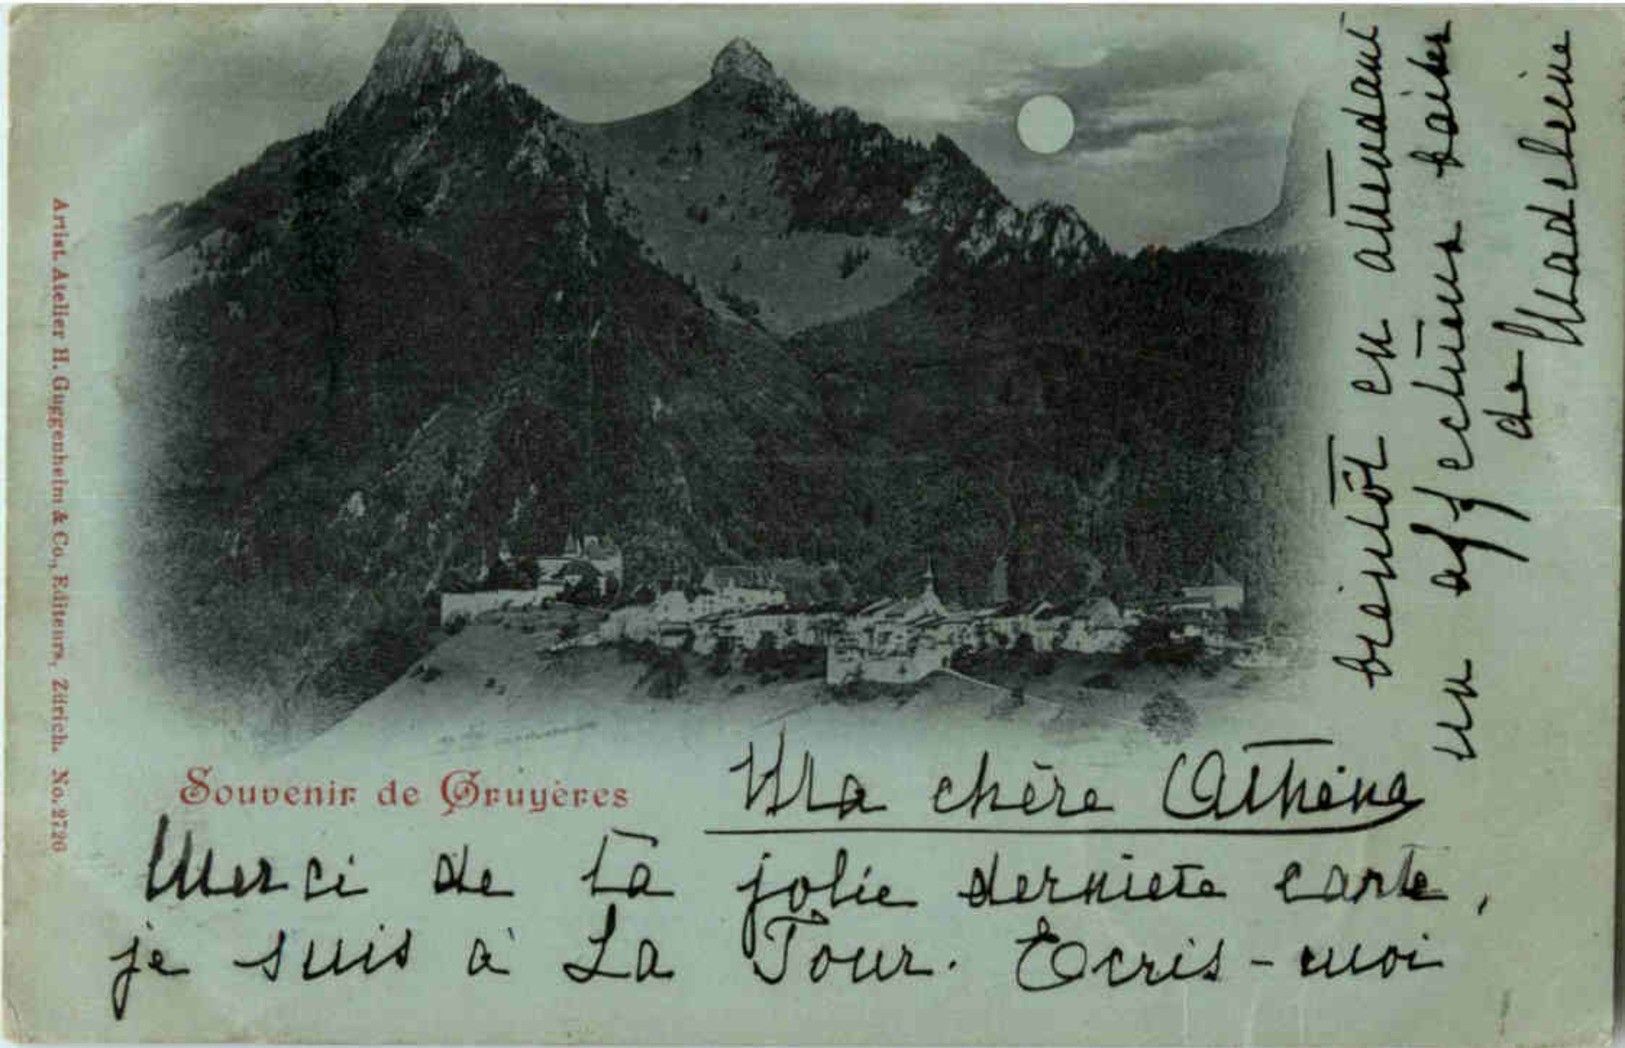 Artist. Atelier H. Guggenheim & Co., Editeurs, Zürich. No. 2720
Souvenir de Gruyères
Ma chère Athéna
Merci de ta jolie dernière carte,
je suis à La Tour. Ecris-moi
bientôt en attendant
un affectueux baiser
de Madeleine